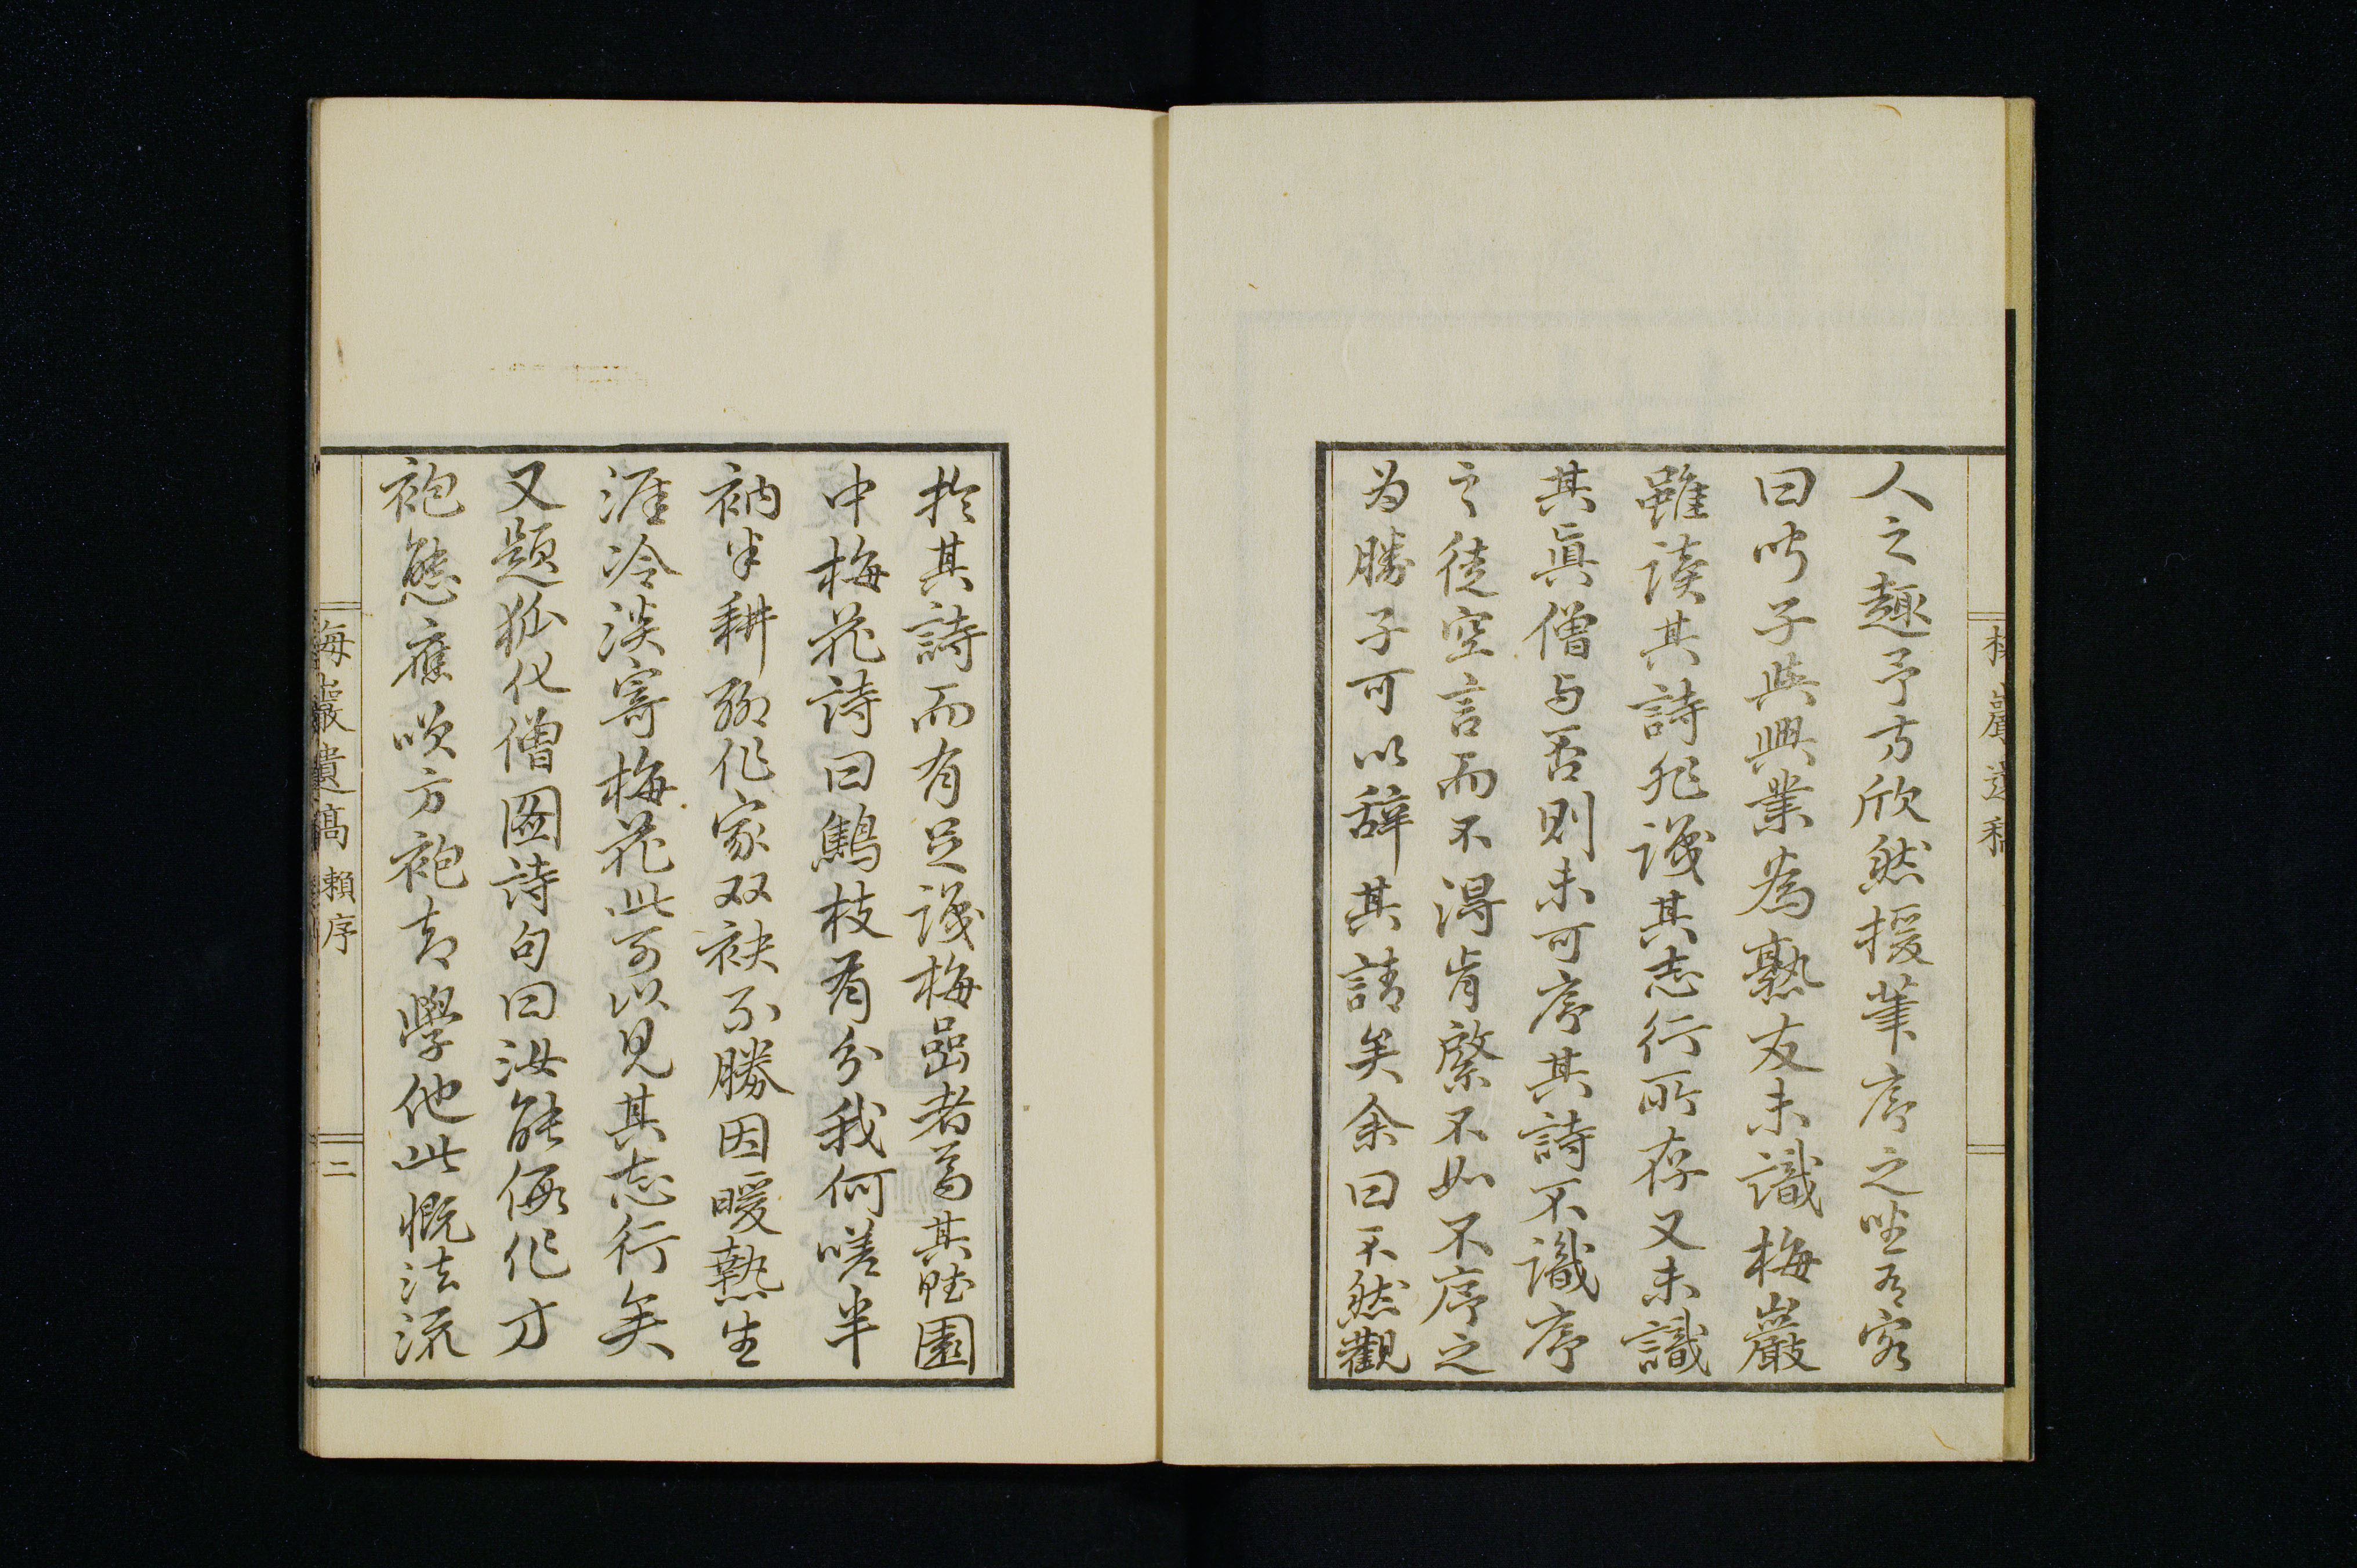 人之趣予方欣然援筆序之坐有客
曰吁子與興業為熟友未識梅巖
雖讀其詩非識其志行所存又未識
其眞僧与否則未可序其詩不識序
之徒空言而不得肯綮不如不序之
為勝子可以辞其請矣余曰不然觀
於其詩而有足識梅嵒者焉其畦園
中梅花詩曰鷦枝有分我何嗟半
衲半耕聊作家双袂不勝因暖熱生
涯冷淡寄梅花此可以見其志行矣
又題狐化僧圖詩句曰汝能假作方
袍態應咲方袍却學他此慨法流
梅巖遺稿 賴序 二